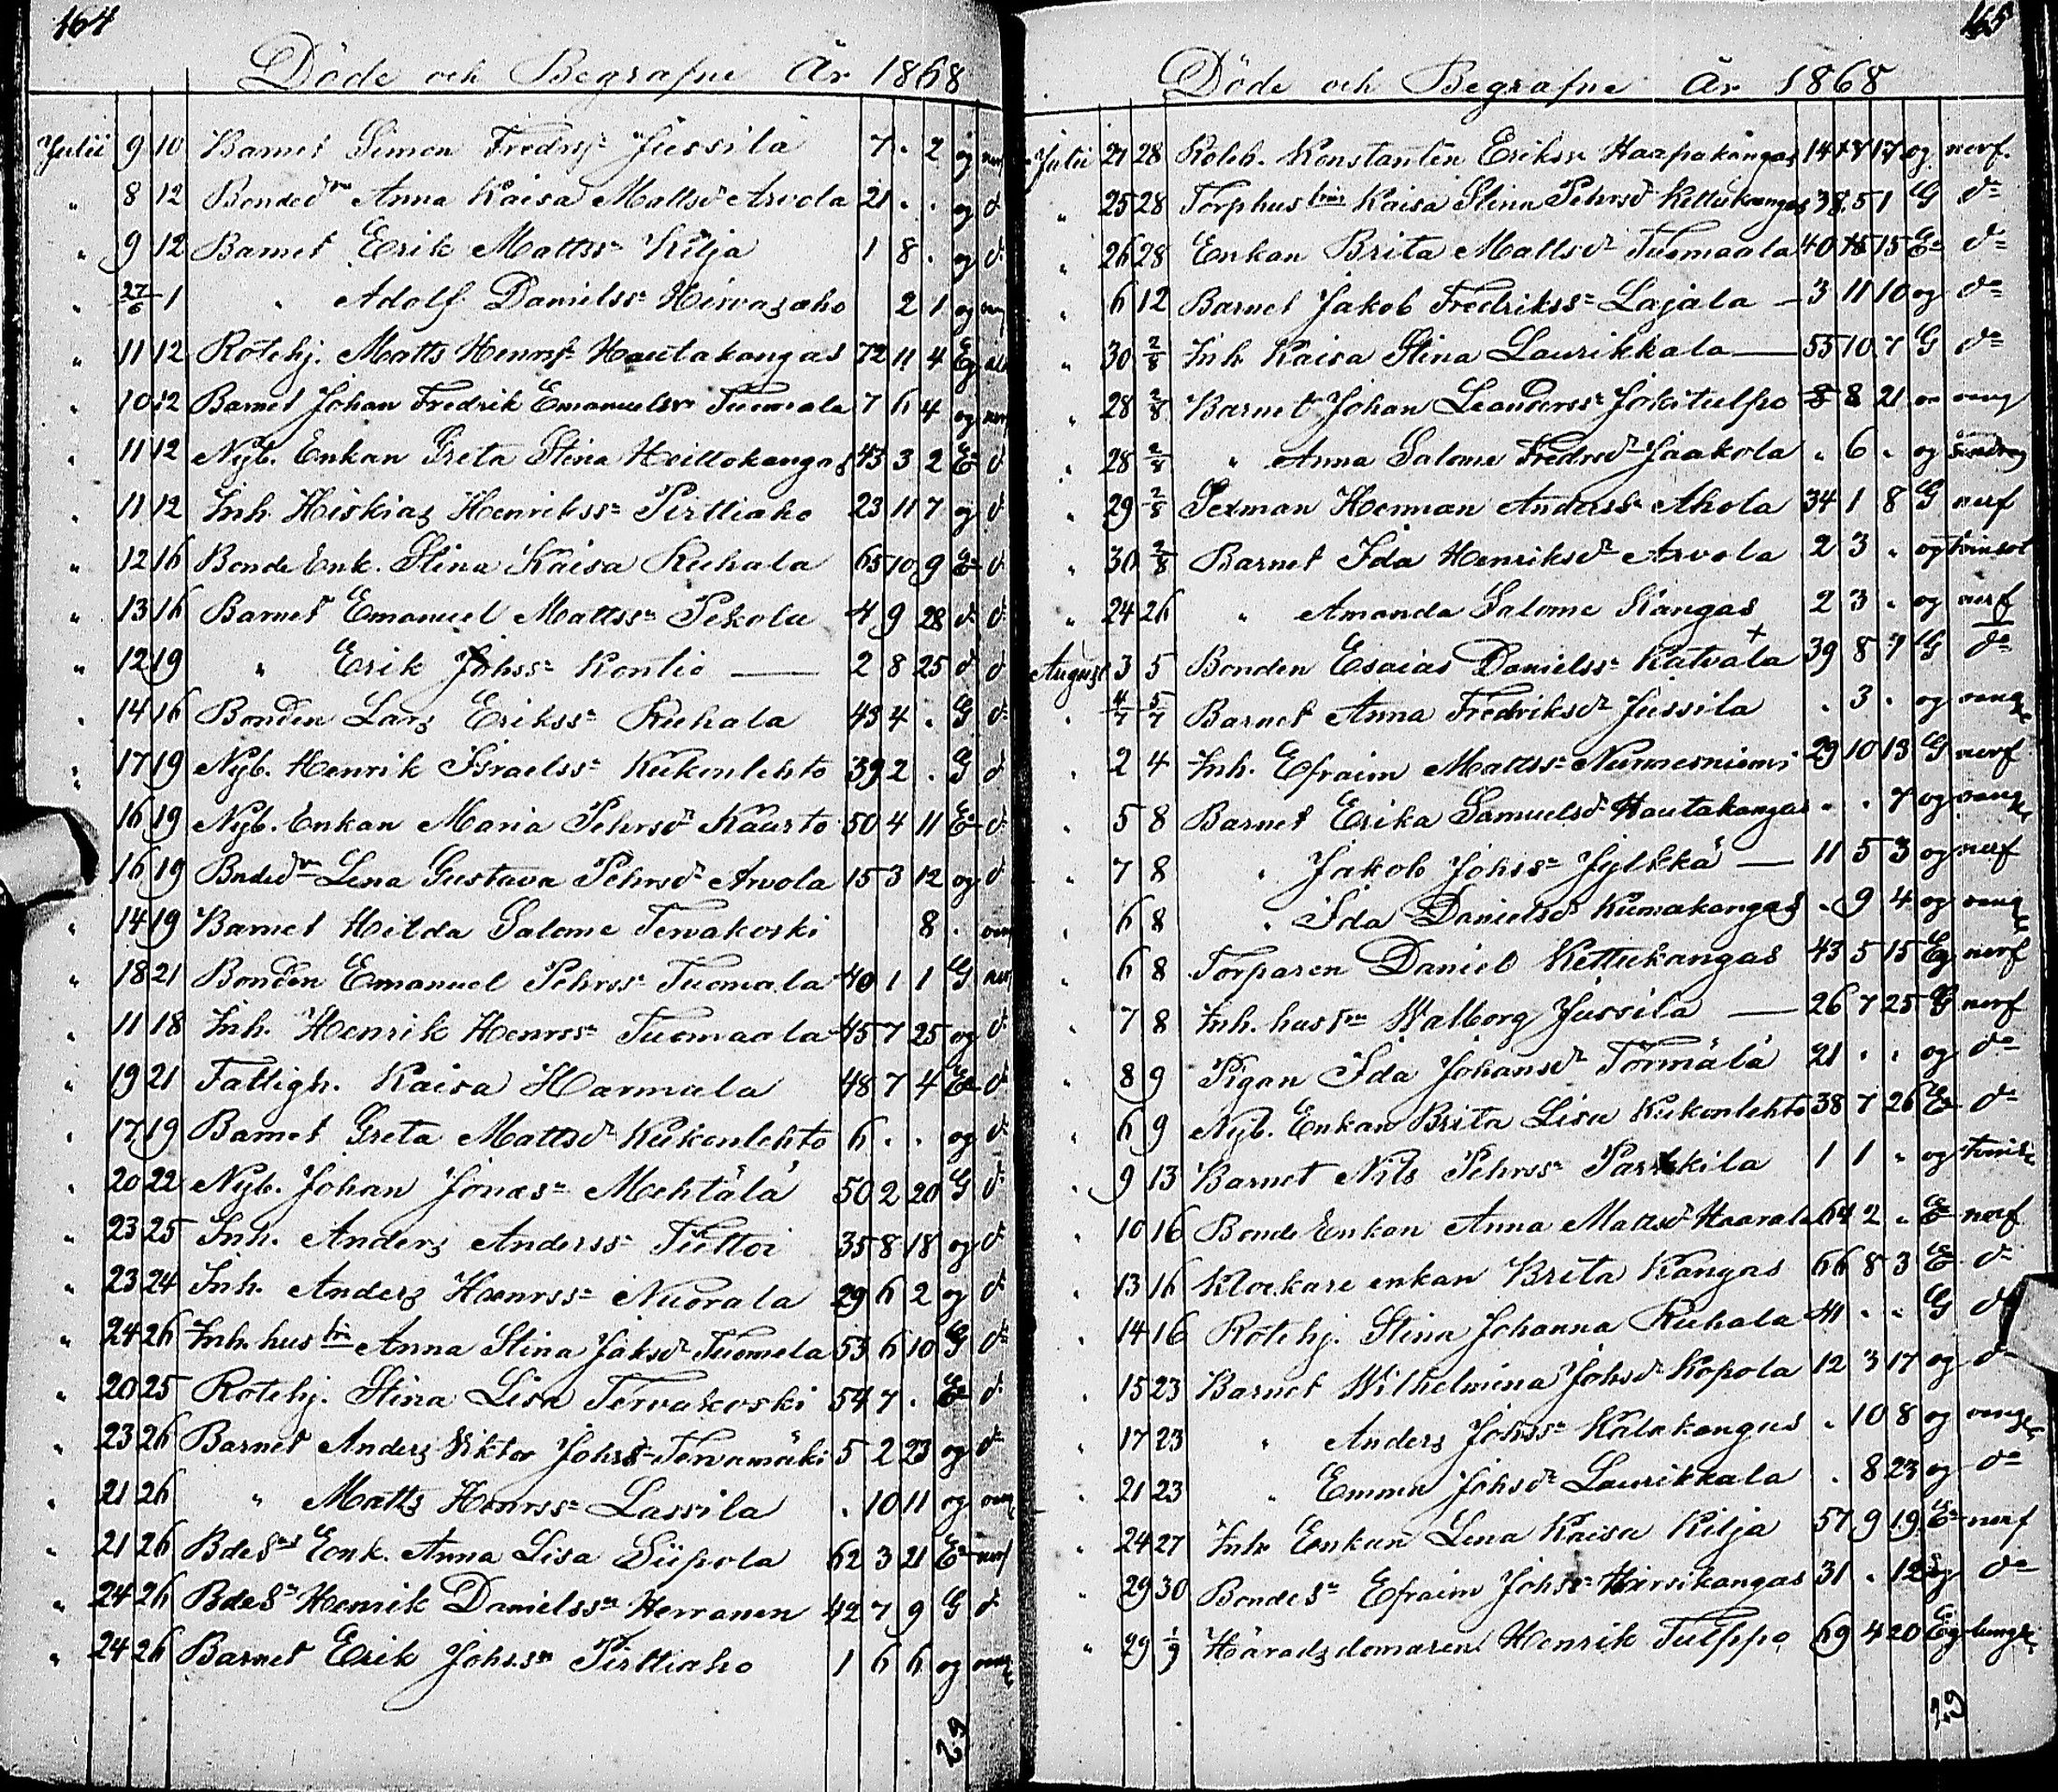 164
Döde och Begrafne År 1868
Julii 9 10 Barnet Simon Fredrss Jussila 7 . 2 og nerf
" 8 12 Bonded:r Anna Kaisa Mattsd:r Arvola 21 . . og d:o
" 9 12 Barnet Erik Mattss:n Kilja 1 8 . og d:o
" 27/6 1 " Adolf Danielss:n Hirvasaho 2 1 og
" 11 12 Rotehj. Matts Henrss Hautakangas 72 11 4 Eg
" 10 12 Barnet Johan Fredrik Emanuelss:n Tuomala 7 6 4 og nerf
" 11 12 Nyb. Enkan Greta Stina Heittokangas 43 3 2 E:a d:o
" 11 12 Inh. Hiskias Henrikss:n Pirttiaho 23 11 7 og d:o
" 12 16 Bonde Enk. Stina Kaisa Ruhala 65 10 9 E:a d:o
" 13 16 Barnet Emanuel Mattss:n Pekola 4 9 28 d:o d:o
" 12 19 " Erik Johss:n Kontio — 2 8 25 d:o d:o
" 14 16 Bonden Lars Erikss:n Ruhala 43 4 . G d:o
" 17 19 Nyb. Henrik Israelss:n Kukonlehto 39 2 . G d:o
" 16 19 Nyb. Enkan Maria Pehrsd:r Kaarto 50 4 11 E:a d:o
16 19 Bnded:r Lena Gustava Pehrsd:r Arvola 15 3 12 og d:o
" 14 19 Barnet Hilda Salome Tervakoski 8 .
" 18 21 Bonden Emanuel Pehrss:n Tuomala 40 1 1 G nerf
" 11 18 Inh. Henrik Henrss:n Tuomaala 45 7 25 og d:o
" 19 21 Fattigh. Kaisa Harmala 48 7 4 E:a d:o
" 17 19 Barnet Greta Mattsd:r Kukonlehto 6 . . og d:o
" 20 22 Nyb. Johan Jonass:n Mehtälä 50 2 20 G d:o
" 23 25 Inh. Anders Anderss:n Tuttoi 35 8 18 og d:o
" 23 24 Inh. Anders Henrss:n Nuorala 29 6 2 og d:o
" 24 26 Inh. hustru Anna Stina Jaksd:r Tuomela 53 6 10 G d:o
" 20 25 Rotehj. Stina Lisa Tervakoski 54 7 . E:a d:o
" 23 26 Barnet Anders Viktor Johss:n Tervamäki 5 2 23 og d:o
" 21 26 " Matts Henrss:n Lassila . 10 11 og
" 21 26 Bdes:s Enk. Anna Lisa Siipola 62 3 21 E:a nerf
" 24 26 Bdes:n Henrik Danielss:n Herranen 42 7 9 G d:o
" 24 26 Barnet Erik Johss:n Pirttiaho 1 6 6 og
29
165
Döde och Begrafne År 1868
Julii 21 28 Roteh. Konstantin Erikss:n Haapakangas 14 17 og nerf.
" 25 28 Torphustru Kaisa Stina Pehrsd:r Kettukangas 38 5 1 G d:o
" 26 28 Enkan Brita Mattsd:r Tuomaala 40 15 E:a d:o
" 6 12 Barnet Jakob Fredrikss:n Lajala — 3 11 10 og d:o
" 30 2/8 Inh Kaisa Stina Laurikkala — 55 10 7 G d:o
" 28 2/8 Barnet Johan Leanderss:n Jokitulpo 8 21
" 28 2/8 " Anna Salome Fredrsd:r Jaakola . 6 . og
" 29 2/8 Sexman Herman Anderss:n Ahola 34 1 8 G nerf
" 30 2/8 Barnet Ida Henriksd:r Arvola 2 3 . og tvinsot
" 24 26 " Amanda Salome Kangas 2 3 . og nerf
August 3 5 Bonden Esaias Danielss:n Katvala 39 8 7 G d:o
" 4/7 5/7 Barnet Anna Fredriksd:r Jussila . 3 . og
" 2 4 Inh. Efraim Mattss:n Nurmesniemi 29 10 13 G nerf
" 5 8 Barnet Erika Samuelsd:r Hautakangas . . 7 og
" 7 8 " Jakob Johss:n Jylkkä — 11 5 3 og nerf
" 6 8 " Ida Danielsd:r Kumakangas . 9 4 og
" 6 8 Torparen Daniel Kettukangas 43 5 15 Eg nerf
" 7 8 Inh. hustru Walborg Jussila — 26 7 25 G nerf
" 8 9 Pigan Ida Johansd:r Törmälä 21 . . og d:o
" 6 9 Nyb. Enkan Brita Lisa Kukonlehto 38 7 26 E:a d:o
" 9 13 Barnet Nils Pehrss:n Parkkila 1 1 . og
" 10 16 Bonde Enkan Anna Mattsd:r Haarala 64 2 . E:a nerf
" 13 16 Klockare enkan Brita Kangas 66 8 3 E:a d:o
" 14 16 Rotehj. Stina Johanna Ruhala 41 . . G d:o
" 15 23 Barnet Wilhelmina Johsd:r Kopola 12 3 17 og d:o
" 17 23 " Anders Johss:n Kalakangas . 10 8 og
" 21 23 " Emma Johsd:r Laurikkala . 8 23 og d:o
" 24 27 Inh Enkan Lena Kaisa Kilja 57 9 19 E:a nerf
" 29 30 Bondes:n Efraim Johss:n Hirsikangas 31 . 12 og d:o
" 29 1/9 Häradsdomaren Henrik Tulppo 69 4 20 Eg
29